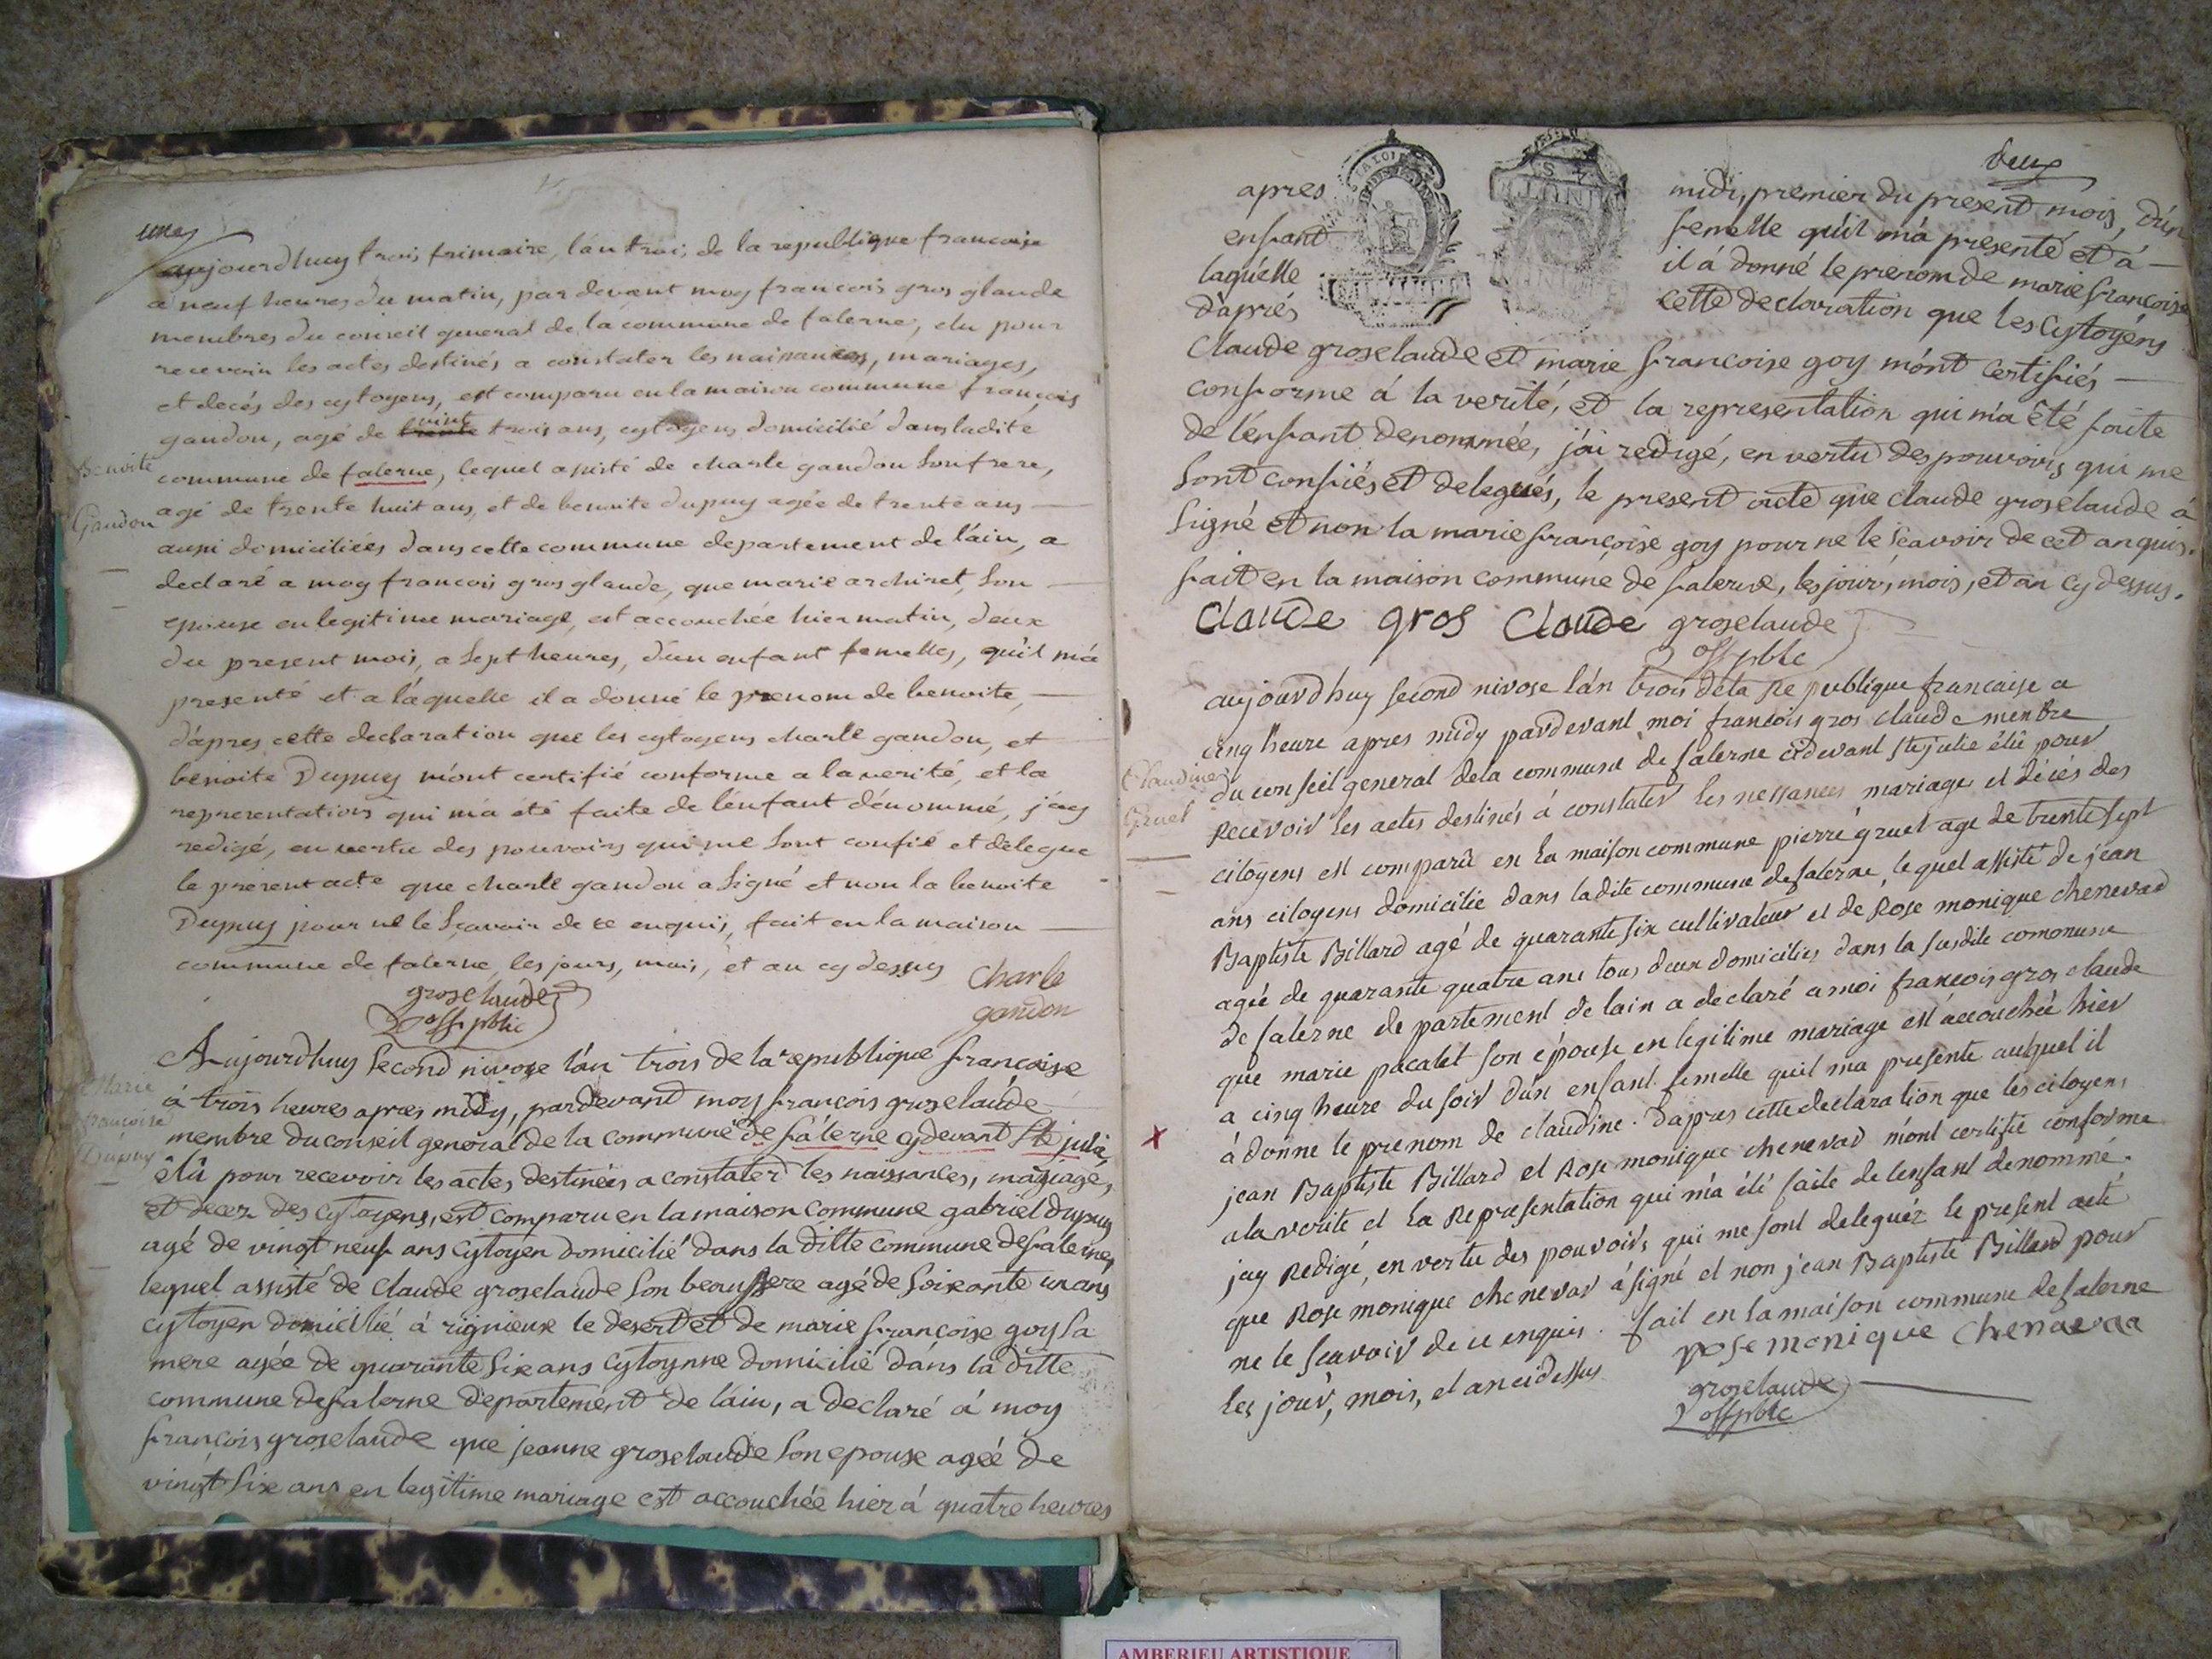 une
aujourdhuy trois frimaire, l'an trois de la republique francoise
a neuf heures du matin, par devant moy francois gros glaude
membres du conseil general de la commune de falerne, elu pour
recevoir les actes destinés a constater les naisances, mariages,
et decés des cytoyens, est comparu en la maison commune françois
gandon, agé de vint trois ans, cytoyens domicilié dans ladite
Benoite
commune de falerne, lequel asisté de charle gandon son frere,
Gandon
agé de trente huit ans, et de benoite dupuy agée de trente ans
ausi domiciliées dans cette commune departement de l'ain, a
declaré a moy francois gros glaude, que marie archinet, son
epouse en legitime mariage, est accouchée hier matin, deux
du present mois, a sept heures, d'un enfant femelles, qu'il m'a
presenté et a laquelle il a donné le prenom de benoite,
d'apres cette declaration que les cytoyens charle gandon, et
benoite Dupuy m'ont certifié conforme a la verité, et la
representations qui m'a été faite de l'enfant dénommé, j'ay
redigé, en vertu des pouvoirs qui me sont confié et delegue
le present acte que charle gandon a signé et non la benoite
Dupuy pour ne le sçavoir de ce enquis, fait en la maison
commune de falerne, les jours, mois, et an cy dessus
Charle
gandon
groselaude
off. pblic
Aujourdhuy second nivose l'an trois de la republique françoise
Marie
à trois heures apres midy, pardevand moy françois groselaude
francoise
membre du conseil general de la commune de falerne cydevant Ste julie,
Dupuy
êlû pour recevoir les actes destinées a constater les naissances, mariage,
et decez des cytoyens, est comparu en la maison commune gabriel dupuy
agé de vingt neuf ans cytoyen domicilié dans la ditte commune de falerne,
lequel assisté de Claude groselaude son beaupere agé de soixante un ans
cytoyen domicilié à rignieux le desert et de marie françoise goy sa
mere agée de quarante six ans cytoynne domicilié dans la ditte
commune de falerne departement de l'ain, a declaré à moy
françois groselaude que jeanne groselaude son epouse agée de
vingt six ans en legitime mariage est accouchée hier à quatre heures
deux
apres midi, premier du present mois, d'un
enfant femelle qu'il m'a présenté et à
laquelle il á donné le prenom de marie françoise
d'aprés cette declaration que les Cytoyéns
Claude groselaude et marie françoise goy m'ont certifiés
conforme á la verité, et la representation qui m'a été faite
de l'enfant denommée, j'ai redigé, en vertu des pouvoirs qui me
sont confiés et delegués, le present acte que claude groselaude á
signé et non la marie françoise goy pour ne le sçavoir de cet anquis.
fait en la maison commune de falerne, les jours, mois, et an cy dessus.
Claude gros Claude groselaude
off pblc
aujourdhuy second nivose l'an trois de la Republique francaise a
cinq heure apres midy pardevant moi francois gros claude menbre
Claudine
du conseil general de la commune de falerne cidevant ste julie élû pour
Gruel
Recevoir les actes destinés à constater les nessances mariages et décés des
citoyens est comparû en la maison commune pierre gruel age de trente sept
ans citoyens domicilie dans ladite commune de falerne, lequel assisté de jean
Baptiste Billard agé de quarante six cultivateur et de Rose monique chenevad
agée de quarante quatre ans tous deux domicilies dans la susdite commune
de falerne departement de lain a declaré a moi francois gros claude
que marie pacalet son épouse en legitime mariage est accouchée hier
a cinq heure du soir d'un enfant femelle quil ma presente auquel il
à donne le prenom de claudine. dapres cette declaration que les citoyens
jean Baptiste Billard et Rose monique chenevad m'ont certifie conforme
a la verite et la Representation qui m'a été faite de lenfant denommé.
jay Redigé, en vertu des pouvoirs qui me sont deleguéz le present acte
que Rose monique chenevar á signé et non jean Baptiste Billard pour
ne le scavoir de ce enquis. fait en la maison commune de falerne
les jour, mois, et an ci dessus
rose monique Chenavaa
groselaude
off pblc
AMBERIEU ARTISTIQUE